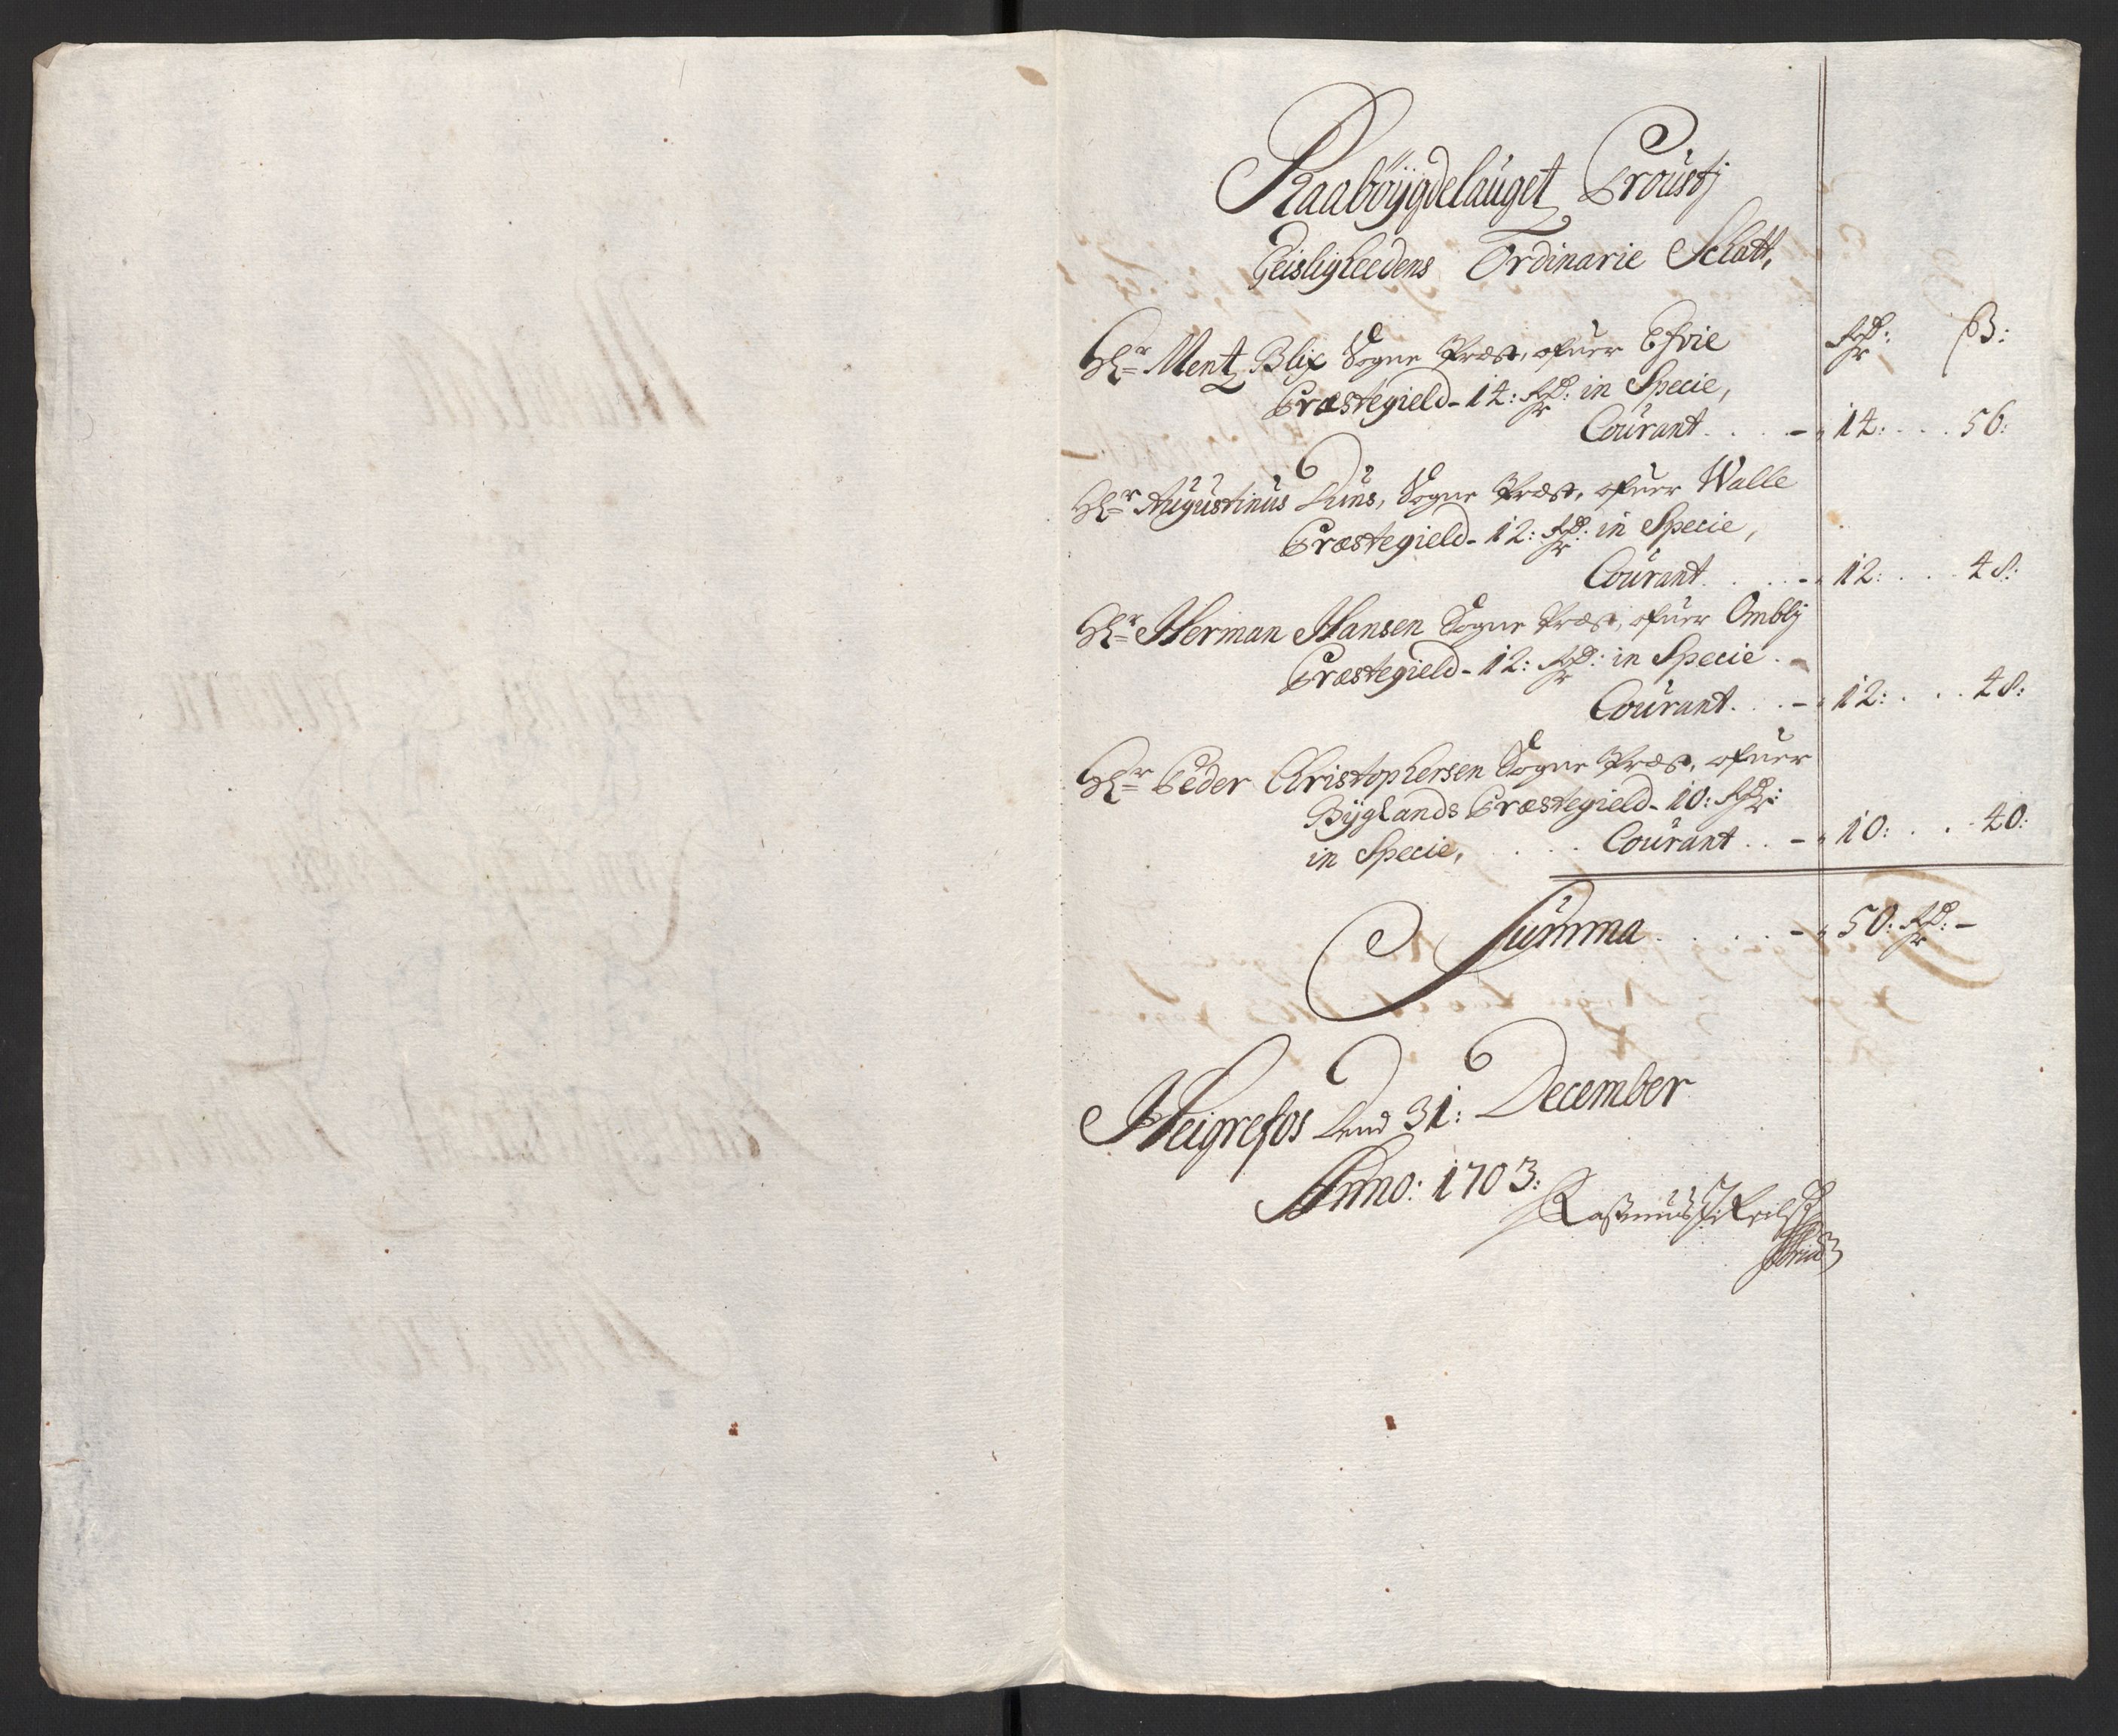 Raabøygdelauget Proustj
Geisligheedens Ordinarie Schatt,
Rd: ß:
Hr Mentz Blix Sogne Præst, ofuer Efvie
Præstegield - 14: Rdr: in Specie,
Courant . . . . - 14: . . . 56:
Hr Augustinus Duus, Sogne Præst, ofuer Walle
Præstegield - 12: Rdr: in Specie,
Courant . . . . - 12: . . . 48:
Hr Herman Hansen Sogne Præst, ofuer Omblj
Præstegield - 12: Rdr: in Specie .
Courant . . . - 12: . . . 48:
Hr Peder Christophersen Sogne Præst, ofuer
Býglands Præstegield - 10: Rdr:
in Specie, . . . . Courant . . - 10: . . . 40:
Summa . . . . - 50: Rdr: -
Heigrefos Dend 31: December
Anno: 1703:
Rasmus